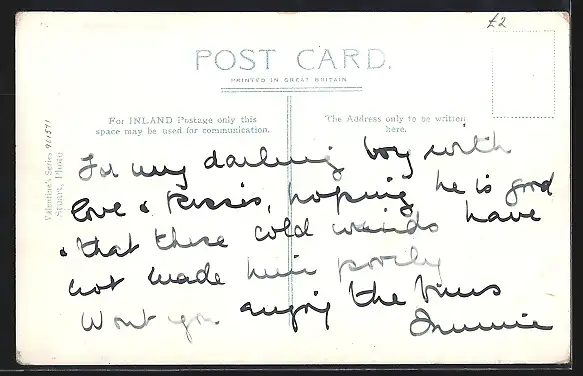 £2
POST CARD.
PRINTED IN GREAT BRITAIN
For INLAND Postage only this
space may be used for communication.
The Address only to be written
here.
Valentine's Series 201571
Stuart, Photo
For my darling boy with
love & Kisses, hoping he is good
& that these cold winds have
not made him poorly
Wont you enjoy the